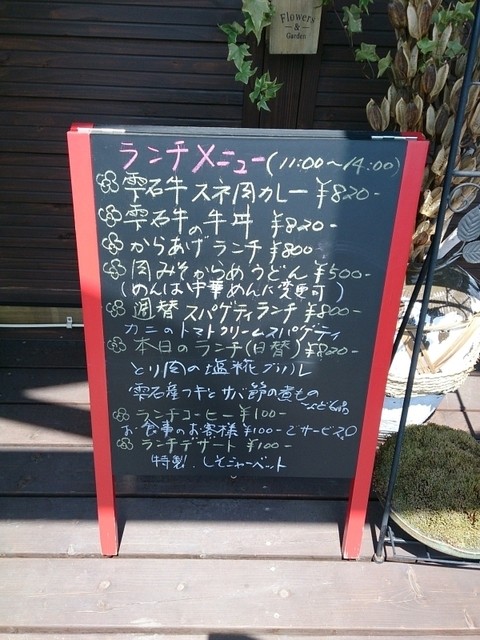 Flowers
&
Garden
ランチメニュー(11:00~14:00)
雫石牛スネ肉カレー ¥820-
雫石牛の牛丼 ¥820-
からあげランチ ¥800
肉みそからめうどん ¥500-
(めんは中華めんに変更可)
週替スパゲティランチ ¥800-
カニのトマトクリームスパゲティ
本日のランチ(日替) ¥820-
とり肉の塩糀グリル
雫石産フキとサバ節の煮もの
など6品
ランチコーヒー ¥100-
お食事のお客様¥100-でサービス
ランチデザート ¥100-
特製.しそシャーベット